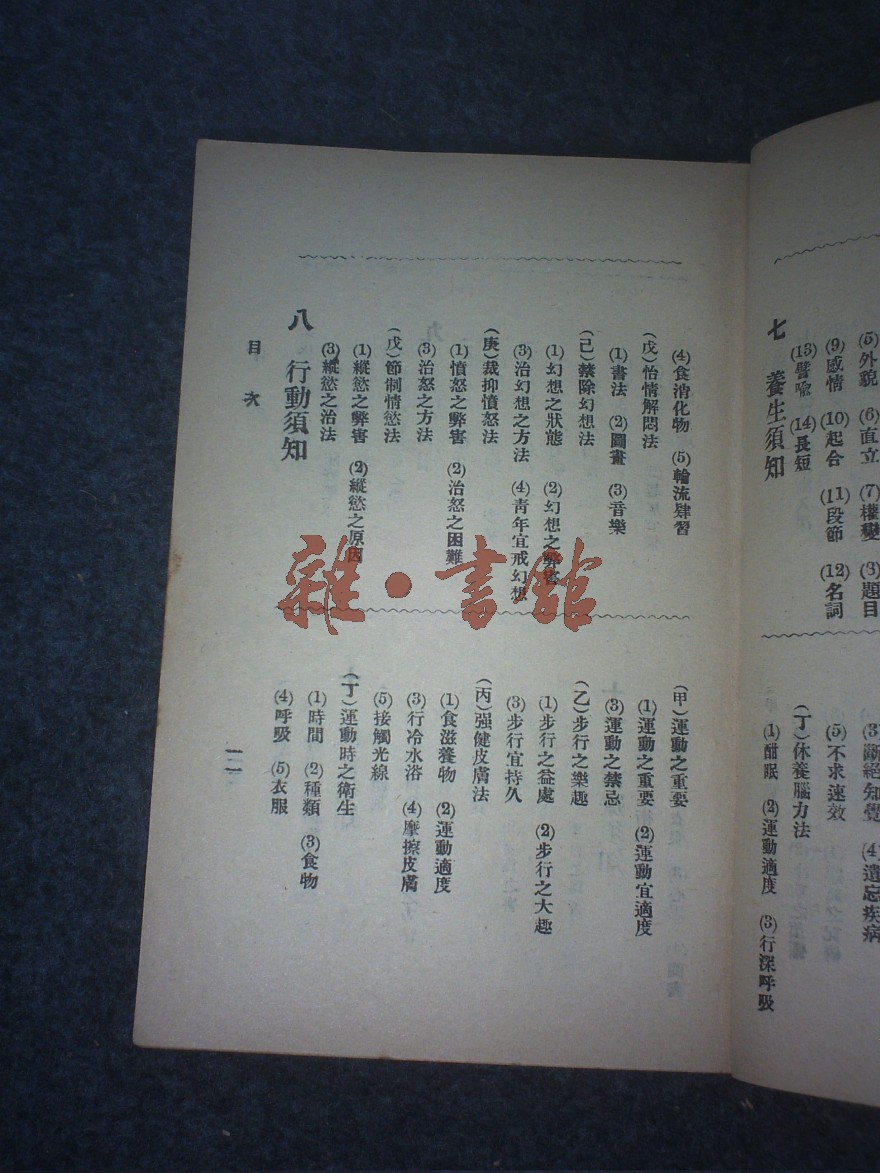 (5)外貌 (6)直立 (7)權變 (8)題目
(9)感情 (10)起合 (11)段節 (12)名詞
(13)譬喩 (14)長短
七 養生須知
(3)斷絕知覺 (4)遺忘疾病
(5)不求速效
(丁)休養腦力法
(1)酣眠 (2)運動適度 (3)行深呼吸
(4)食消化物 (5)輪流肄習
(戊)怡情解悶法
(1)書法 (2)圖畫 (3)音樂
(己)禁除幻想法
(1)幻想之狀態 (2)幻想之弊害
(3)治幻想之方法 (4)靑年宜戒幻想
(庚)裁抑憤怒法
(1)憤怒之弊害 (2)治怒之困難
(3)治怒之方法
(戊)節制情慾法
(1)縱慾之弊害 (2)縱慾之原因
(3)縱慾之治法
八 行動須知
(甲)運動之重要
(1)運動之重要 (2)運動宜適度
(3)運動之禁忌
(乙)步行之樂趣
(1)步行之益處 (2)步行之大趣
(3)步行宜持久
(丙)强健皮膚法
(1)食滋養物 (2)運動適度
(3)行冷水浴 (4)摩擦皮膚
(5)接觸光線
(丁)運動時之衛生
(1)時間 (2)種類 (3)食物
(4)呼吸 (5)衣服
目次
雜·書館